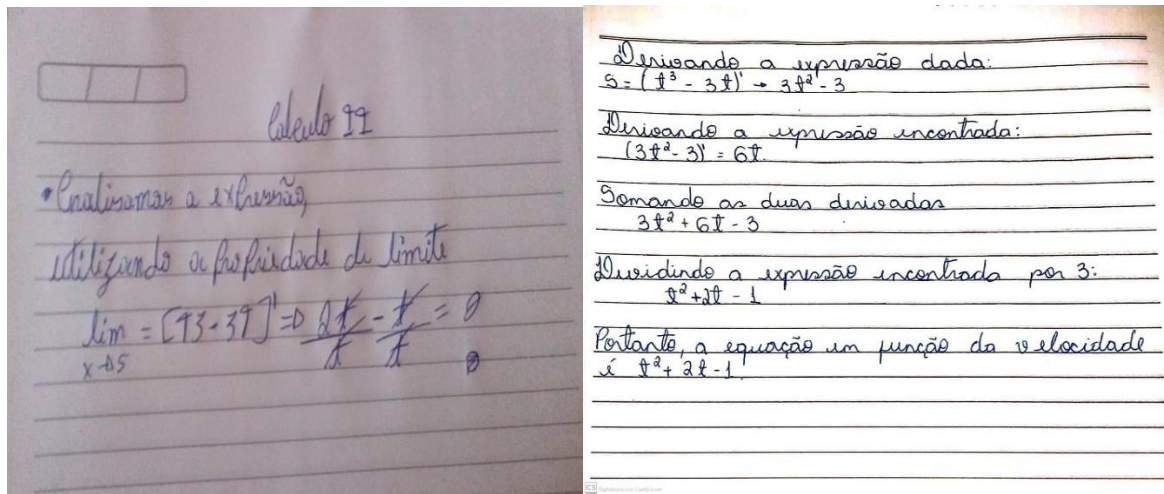 Calculo II
• Analisamos a expressão,
utilizando a propriedade de limite
lim = [t3 - 3t]' => 2t/t - t/t = 0
x→s
0
Derivando a expressão dada:
S = (t³ - 3t)' → 3t² - 3
Derivando a expressão encontrada:
(3t² - 3)' = 6t.
Somando as duas derivadas
3t² + 6t - 3
Dividindo a expressão encontrada por 3:
t² + 2t - 1
Portanto, a equação em função da velocidade
é t² + 2t - 1.
CS